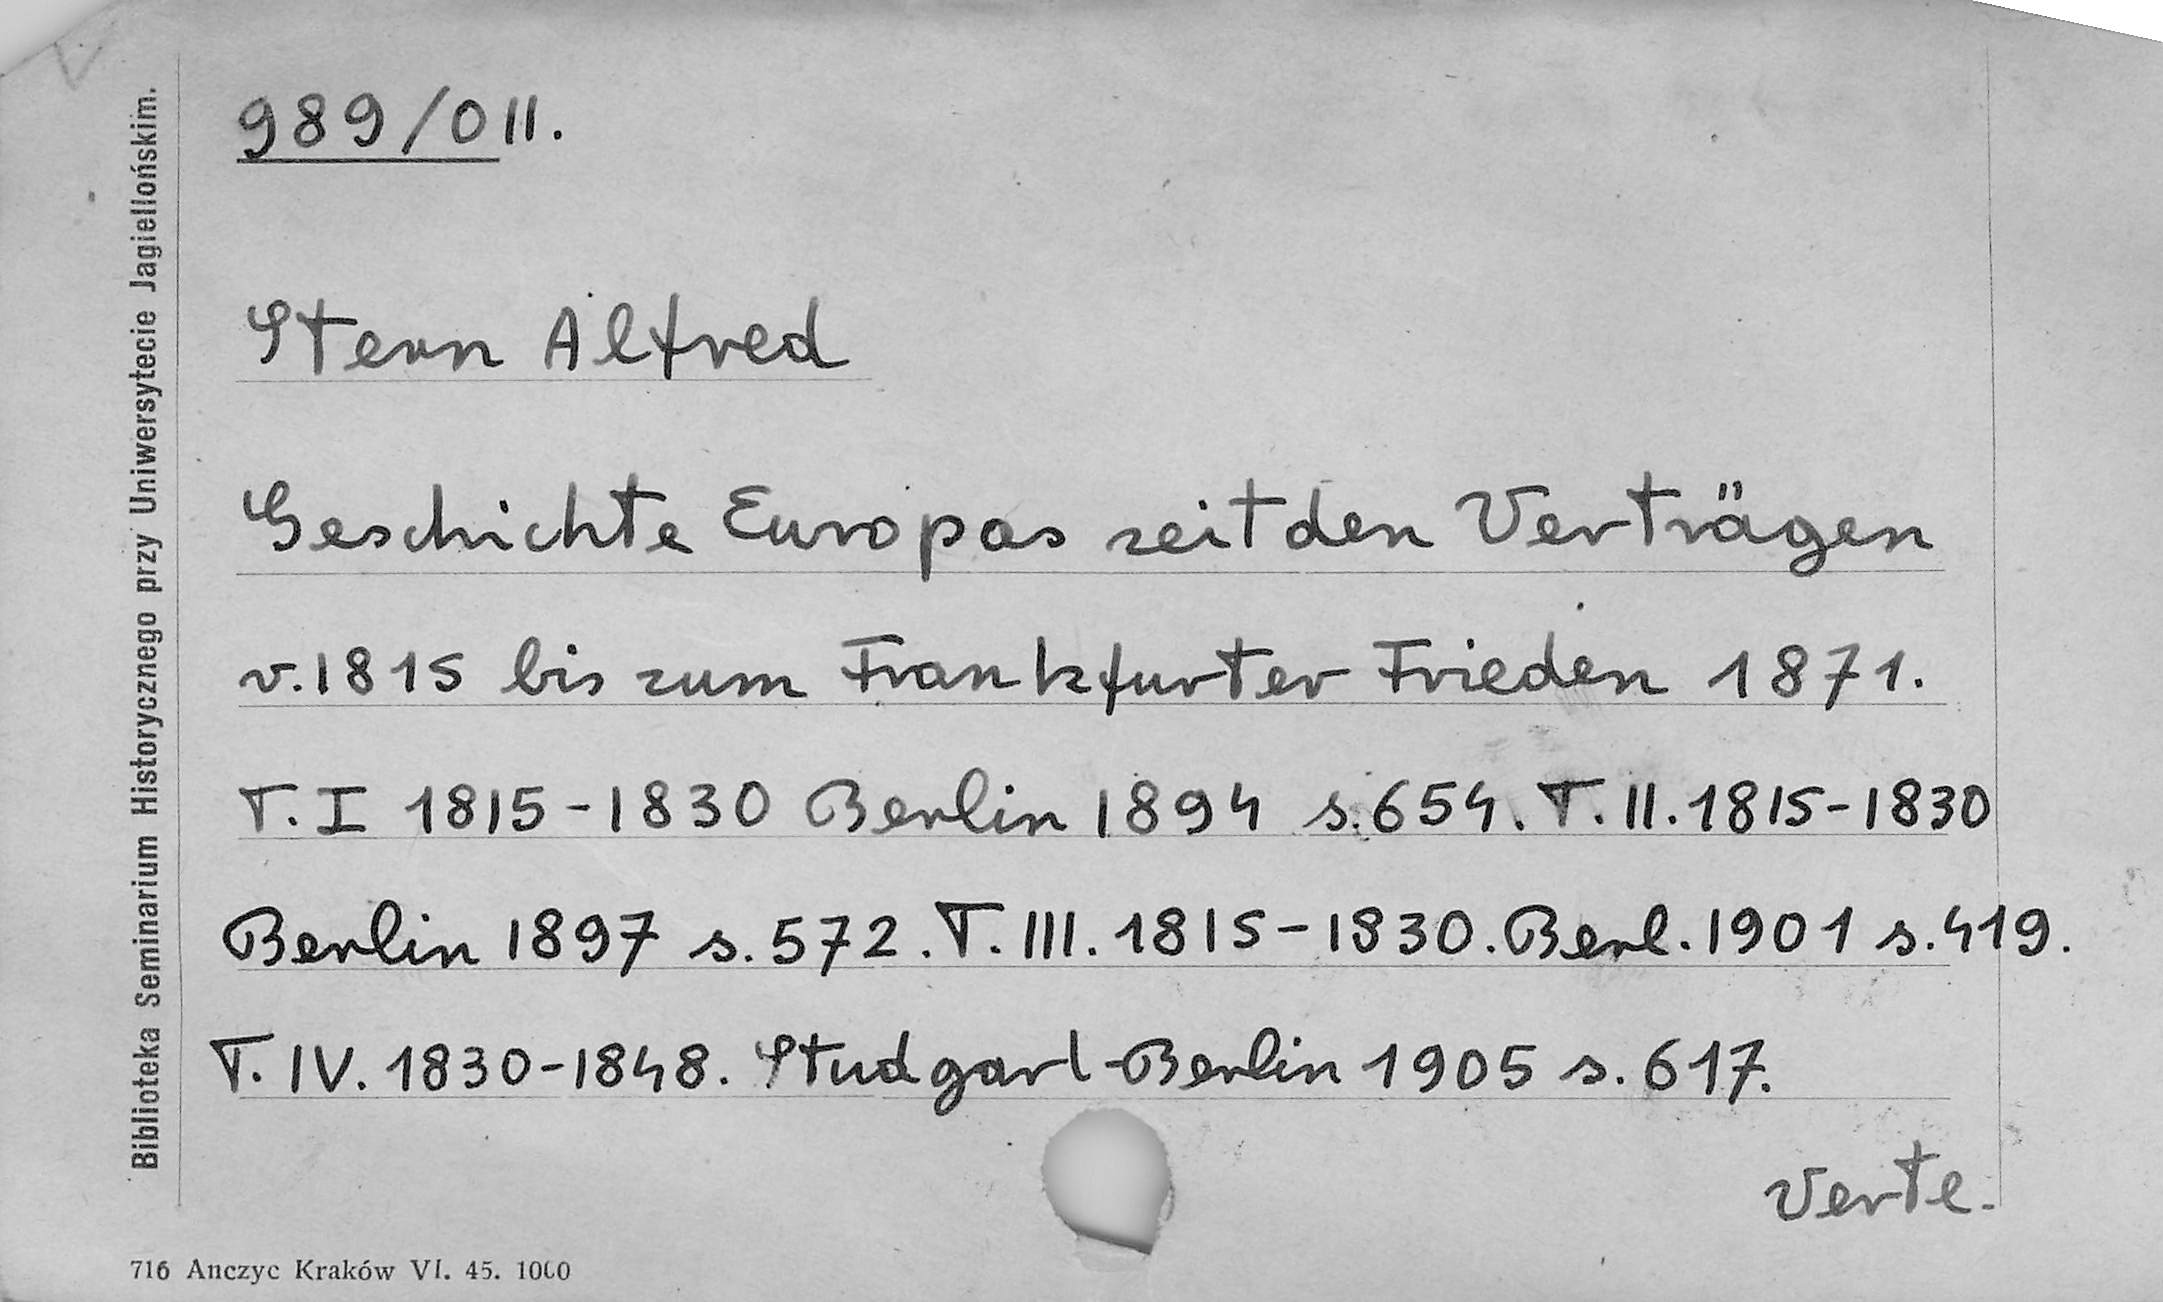 989/O II.
Stern Alfred
Geschichte Europas seit den Verträgen
v. 1815 bis zum Frankfurter Frieden 1871.
T. I 1815-1830 Berlin 1894 s. 654. T. II. 1815-1830
Berlin 1897 s. 572. T. III. 1815-1830. Berl. 1901 s. 419.
T. IV. 1830-1848. Studgart-Berlin 1905 s. 617.
Verte.
Biblioteka Seminarium Historycznego przy Uniwersytecie Jagiellońskim.
716 Anczyc Kraków VI. 45. 1000